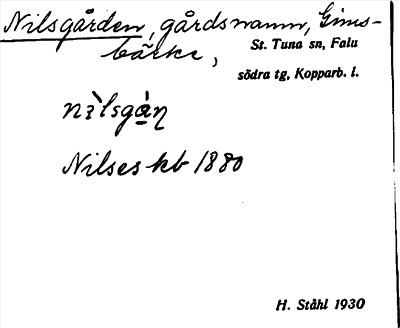 Nilsgården, gårdsnamn, Gims-
bärke,
St. Tuna sn, Falu
södra tg, Kopparb. l.
nɪ̀lsgɑ̀ɳ
Nilses kb 1880
H. Ståhl 1930